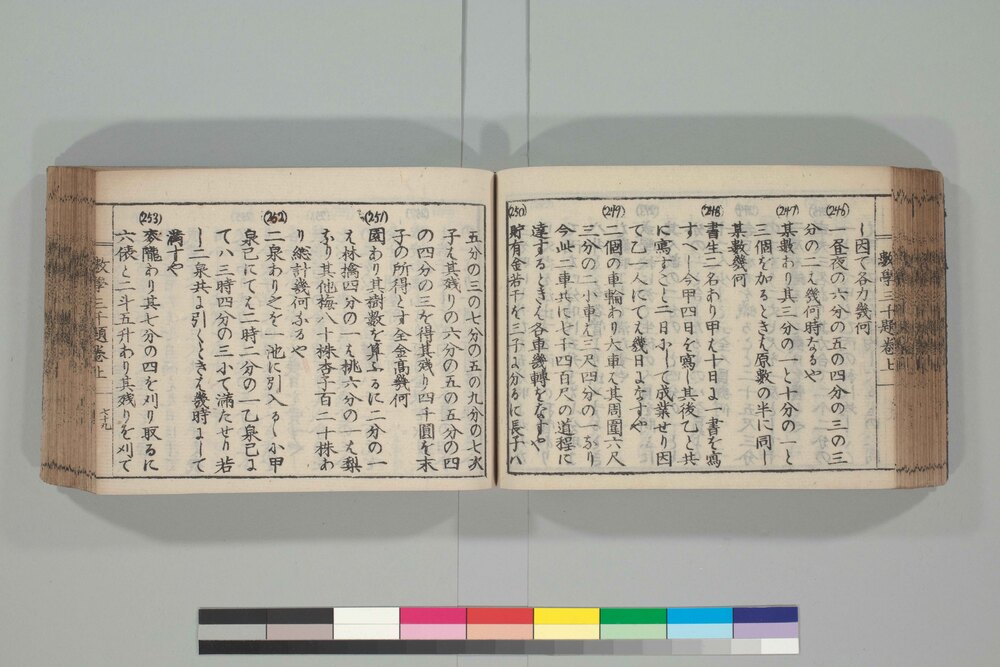 數學三千題卷上
し因て各力幾何
(246)
一昼夜の六分の五の四分の三の三
分の二ハ幾何時なるや
(247)
其數あり其三分の一と十分の一と
三個を加るときハ原數の半に同し
其數幾何
(248)
書生二名あり甲ハ十日に一書を寫
すへし今甲四日を寫し其後乙と共
に寫すこと二日にして成業せり因
て乙一人にてハ幾日になすや
(249)
二個の車輪あり大車ハ其周圍六尺
三分の二小車ハ三尺四分の一なり
今此二車共に七千四百尺の道程に
達するときハ各車幾轉をなすや
(250)
貯有金若干を三子に分るに長子ハ
五分の三の七分の五の九分の七次
子ハ其残りの六分の五の五分の四
の四分の三を得其残り四千圓を末
子の所得とす全金高幾何
(251)
園あり其樹數を算ふるに二分の一
ハ林檎四分の一ハ桃六分の一ハ梨
なり其他梅八十株杏子百二十株あ
り総計幾何なるや
(252)
二泉あり之を一池に引入るゝに甲
泉己にてハ二時二分の一乙泉己に
てハ三時四分の三にて滿たせり若
し二泉共に引くときハ幾時にして
滿すや
(253)
麥隴あり其七分の四を刈り取るに
六俵と二斗五升あり其残りを刈て
數學三千題卷上
七十九